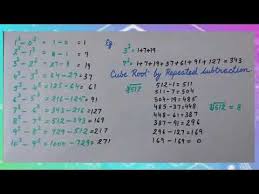 1³ - 0³ = 1 - 0 = 1
2³ - 1³ = 8 - 1 = 7
3³ - 2³ = 27 - 8 = 19
4³ - 3³ = 64 - 27 = 37
5³ - 4³ = 125 - 64 = 61
6³ - 5³ = 216 - 125 = 91
7³ - 6³ = 343 - 216 = 127
8³ - 7³ = 512 - 343 = 169
9³ - 8³ = 729 - 512 = 217
10³ - 9³ = 1000 - 729 = 271
Eg
3³ = 1+7+19
7³ = 1+7+19+37+61+91+127 = 343
Cube Root by Repeated subtraction
512 - 1 = 511
511 - 7 = 504
504 - 19 = 485
485 - 37 = 448
448 - 61 = 387
387 - 91 = 296
296 - 127 = 169
169 - 169 = 0
∛512 = 8